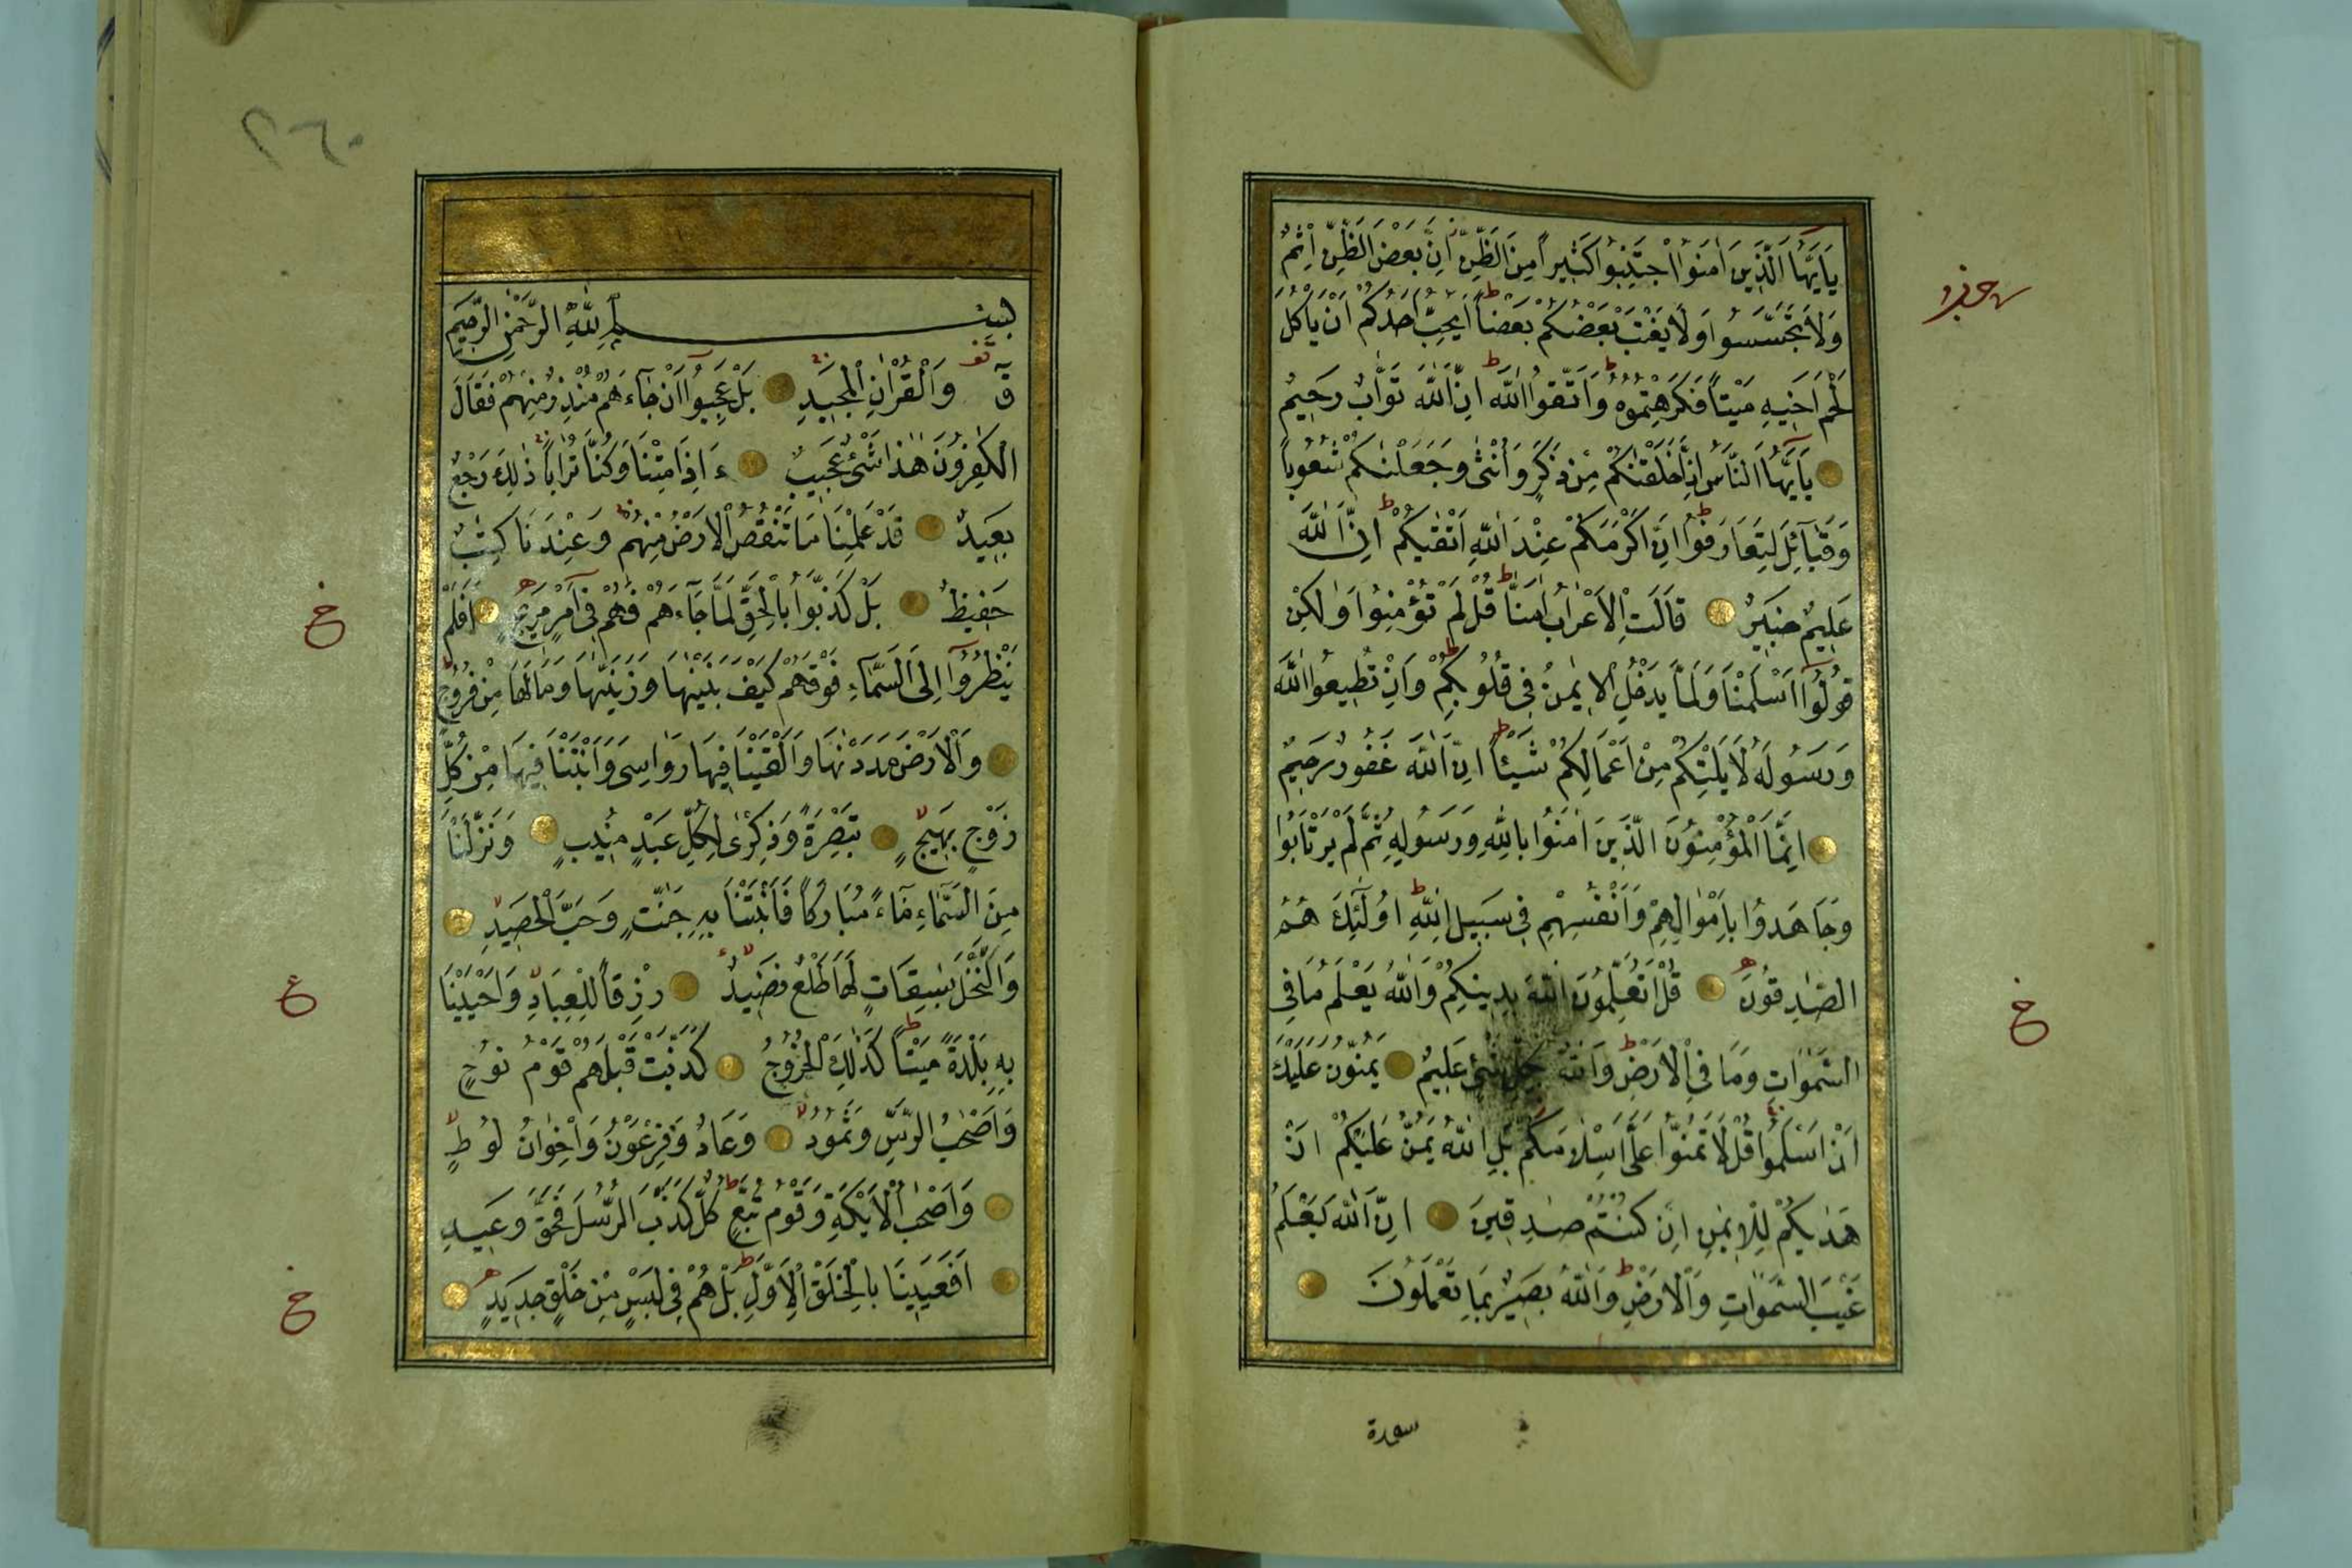 يَا أَيُّهَا الَّذِينَ اٰمَنُوا اجْتَنِبُوا كَثِيرًا مِنَ الظَّنِّ اِنَّ بَعْضَ الظَّنِّ اِثْمٌ
وَلَا تَجَسَّسُوا وَلَا يَغْتَبْ بَعْضُكُمْ بَعْضًا ط اَيُحِبُّ اَحَدُكُمْ اَنْ يَأْكُلَ
لَحْمَ اَخِيهِ مَيْتًا فَكَرِهْتُمُوهُ ط وَاتَّقُوا اللّٰهَ ط اِنَّ اللّٰهَ تَوَّابٌ رَحِيمٌ
يَا أَيُّهَا النَّاسُ اِنَّا خَلَقْنٰكُمْ مِنْ ذَكَرٍ وَاُنْثٰى وَجَعَلْنٰكُمْ شُعُوبًا
وَقَبَائِلَ لِتَعَارَفُوا ط اِنَّ اَكْرَمَكُمْ عِنْدَ اللّٰهِ اَتْقٰيكُمْ ط اِنَّ اللّٰهَ
عَلِيمٌ خَبِيرٌ قَالَتِ الْاَعْرَابُ اٰمَنَّا ط قُلْ لَمْ تُؤْمِنُوا وَلٰكِنْ
قُولُوا اَسْلَمْنَا وَلَمَّا يَدْخُلِ الْاِيمٰنُ فِي قُلُوبِكُمْ ط وَاِنْ تُطِيعُوا اللّٰهَ
وَرَسُولَهُ لَا يَلِتْكُمْ مِنْ اَعْمَالِكُمْ شَيْئًا ط اِنَّ اللّٰهَ غَفُورٌ رَحِيمٌ
اِنَّمَا الْمُؤْمِنُونَ الَّذِينَ اٰمَنُوا بِاللّٰهِ وَرَسُولِهِ ثُمَّ لَمْ يَرْتَابُوا
وَجَاهَدُوا بِاَمْوَالِهِمْ وَاَنْفُسِهِمْ فِي سَبِيلِ اللّٰهِ ط اُولٰئِكَ هُمُ
الصّٰدِقُونَ قُلْ اَتُعَلِّمُونَ اللّٰهَ بِدِينِكُمْ وَاللّٰهُ يَعْلَمُ مَا فِي
السَّمٰوَاتِ وَمَا فِي الْاَرْضِ ط وَاللّٰهُ بِكُلِّ شَيْءٍ عَلِيمٌ يَمُنُّونَ عَلَيْكَ
اَنْ اَسْلَمُوا قُلْ لَا تَمُنُّوا عَلَيَّ اِسْلَامَكُمْ بَلِ اللّٰهُ يَمُنُّ عَلَيْكُمْ اَنْ
هَدٰيكُمْ لِلْاِيمٰنِ اِنْ كُنْتُمْ صٰدِقِينَ اِنَّ اللّٰهَ يَعْلَمُ
غَيْبَ السَّمٰوَاتِ وَالْاَرْضِ ط وَاللّٰهُ بَصِيرٌ بِمَا تَعْمَلُونَ
سورة
ع
٢٦٠
بِسْمِ اللّٰهِ الرَّحْمٰنِ الرَّحِيمِ
قٓ وَالْقُرْاٰنِ الْمَجِيدِ بَلْ عَجِبُوا اَنْ جَاءَهُمْ مُنْذِرٌ مِنْهُمْ فَقَالَ
الْكٰفِرُونَ هٰذَا شَيْءٌ عَجِيبٌ ءَاِذَا مِتْنَا وَكُنَّا تُرَابًا ذٰلِكَ رَجْعٌ
بَعِيدٌ قَدْ عَلِمْنَا مَا تَنْقُصُ الْاَرْضُ مِنْهُمْ وَعِنْدَنَا كِتٰبٌ
حَفِيظٌ بَلْ كَذَّبُوا بِالْحَقِّ لَمَّا جَاءَهُمْ فَهُمْ فِي اَمْرٍ مَرِيجٍ اَفَلَمْ
يَنْظُرُوا اِلَى السَّمَاءِ فَوْقَهُمْ كَيْفَ بَنَيْنٰهَا وَزَيَّنّٰهَا وَمَا لَهَا مِنْ فُرُوجٍ
وَالْاَرْضَ مَدَدْنٰهَا وَاَلْقَيْنَا فِيهَا رَوَاسِيَ وَاَنْبَتْنَا فِيهَا مِنْ كُلِّ
زَوْجٍ بَهِيجٍ لا تَبْصِرَةً وَذِكْرٰى لِكُلِّ عَبْدٍ مُنِيبٍ وَنَزَّلْنَا
مِنَ السَّمَاءِ مَاءً مُبَارَكًا فَاَنْبَتْنَا بِهِ جَنّٰتٍ وَحَبَّ الْحَصِيدِ لا
وَالنَّخْلَ بٰسِقَاتٍ لَهَا طَلْعٌ نَضِيدٌ لا رِزْقًا لِلْعِبَادِ لا وَاَحْيَيْنَا
بِهِ بَلْدَةً مَيْتًا ط كَذٰلِكَ الْخُرُوجُ كَذَّبَتْ قَبْلَهُمْ قَوْمُ نُوحٍ
وَاَصْحٰبُ الرَّسِّ وَثَمُودُ لا وَعَادٌ وَفِرْعَوْنُ وَاِخْوَانُ لُوطٍ لا
وَاَصْحٰبُ الْاَيْكَةِ وَقَوْمُ تُبَّعٍ ط كُلٌّ كَذَّبَ الرُّسُلَ فَحَقَّ وَعِيدِ
اَفَعَيِينَا بِالْخَلْقِ الْاَوَّلِ ط بَلْ هُمْ فِي لَبْسٍ مِنْ خَلْقٍ جَدِيدٍ